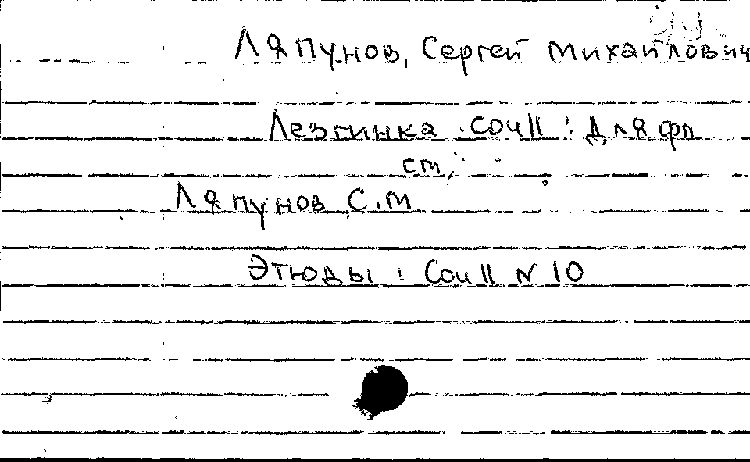 Ляпунов, Сергей Михайлович
Лезгинка. Соч 11 : Для фп
см.
Ляпунов С.М
Этюды : Соч 11 N 10